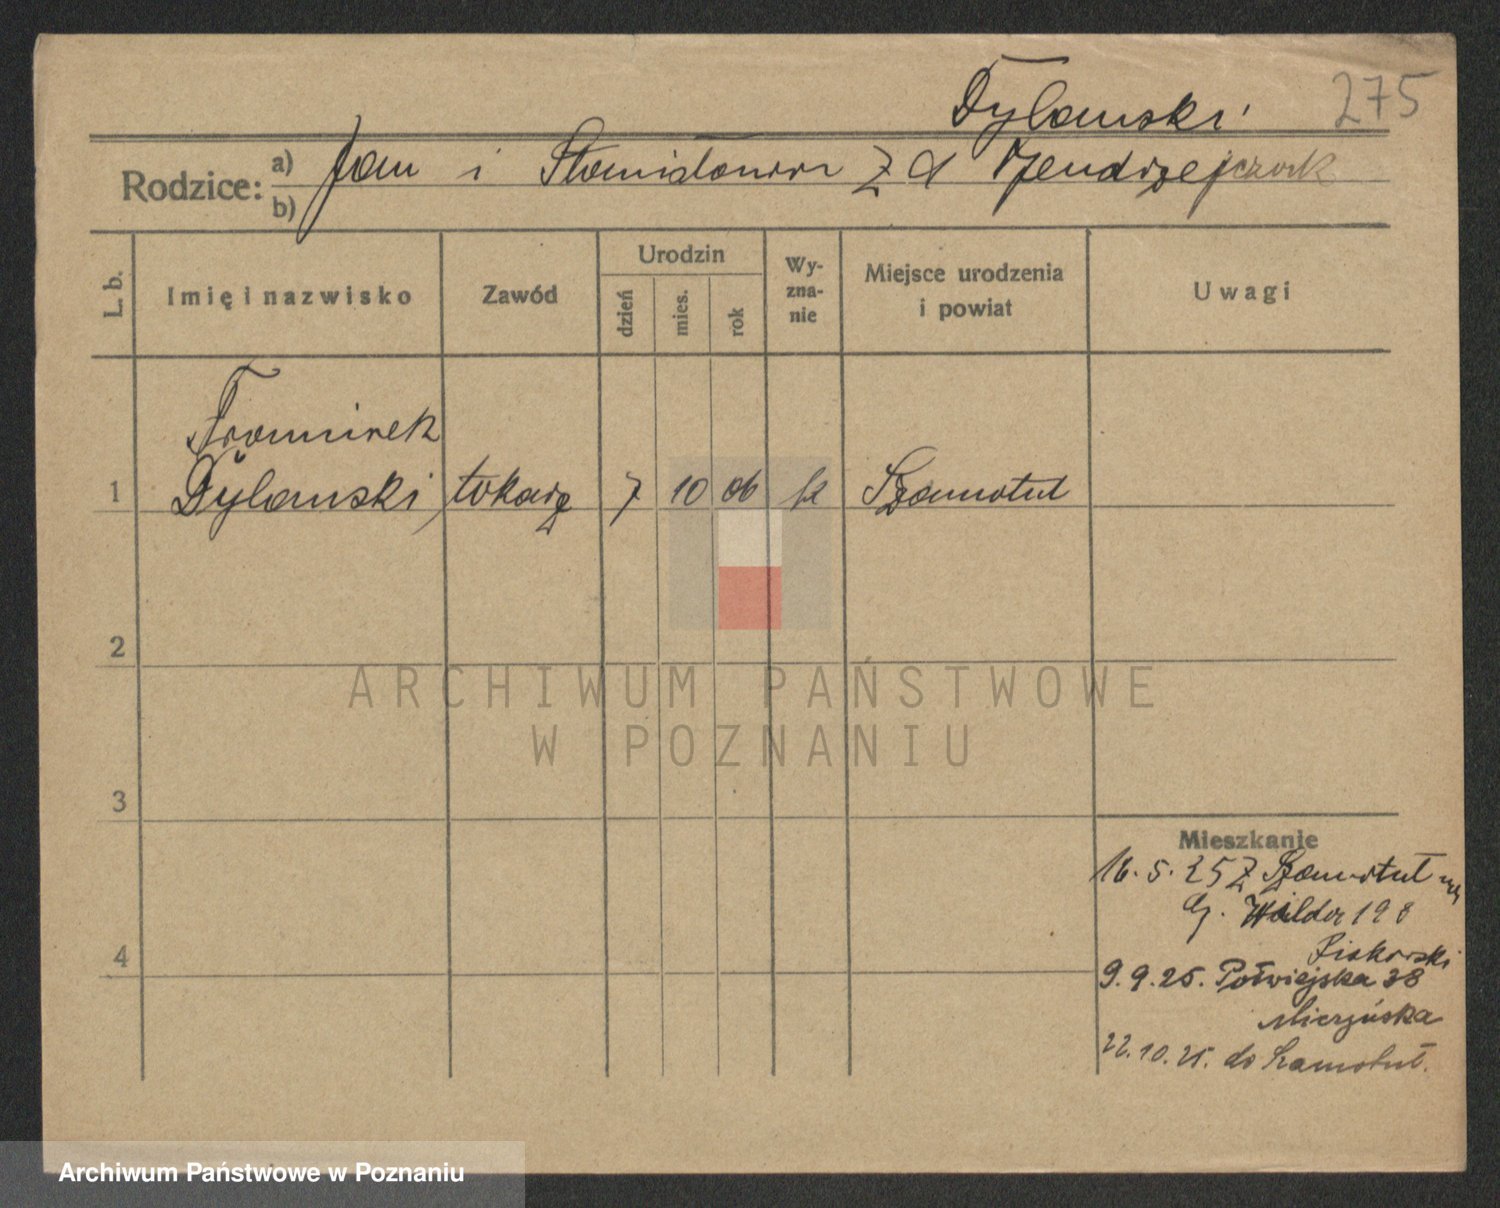 Dylanski
275
Rodzice: a) b) Jan i Stanisława z d Jendrzejczack
L. b.
Imię i nazwisko
Zawód
Urodzin
dzień
mies.
rok
Wy-
zna-
nie
Miejsce urodzenia
i powiat
Uwagi
Franciszek
1 Dylanski tokarz 7 10 06 k Szamotuł
2
ARCHIWUM PAŃSTWOWE
W POZNANIU
3
Mieszkanie
16. 5. 25 z Szamotuł
G. Wilda 198
Piskorski
4
9. 9. 25. Półwiejska 38
Mierzyńska
22. 10. 25. do Szamotuł.
Archiwum Państwowe w Poznaniu